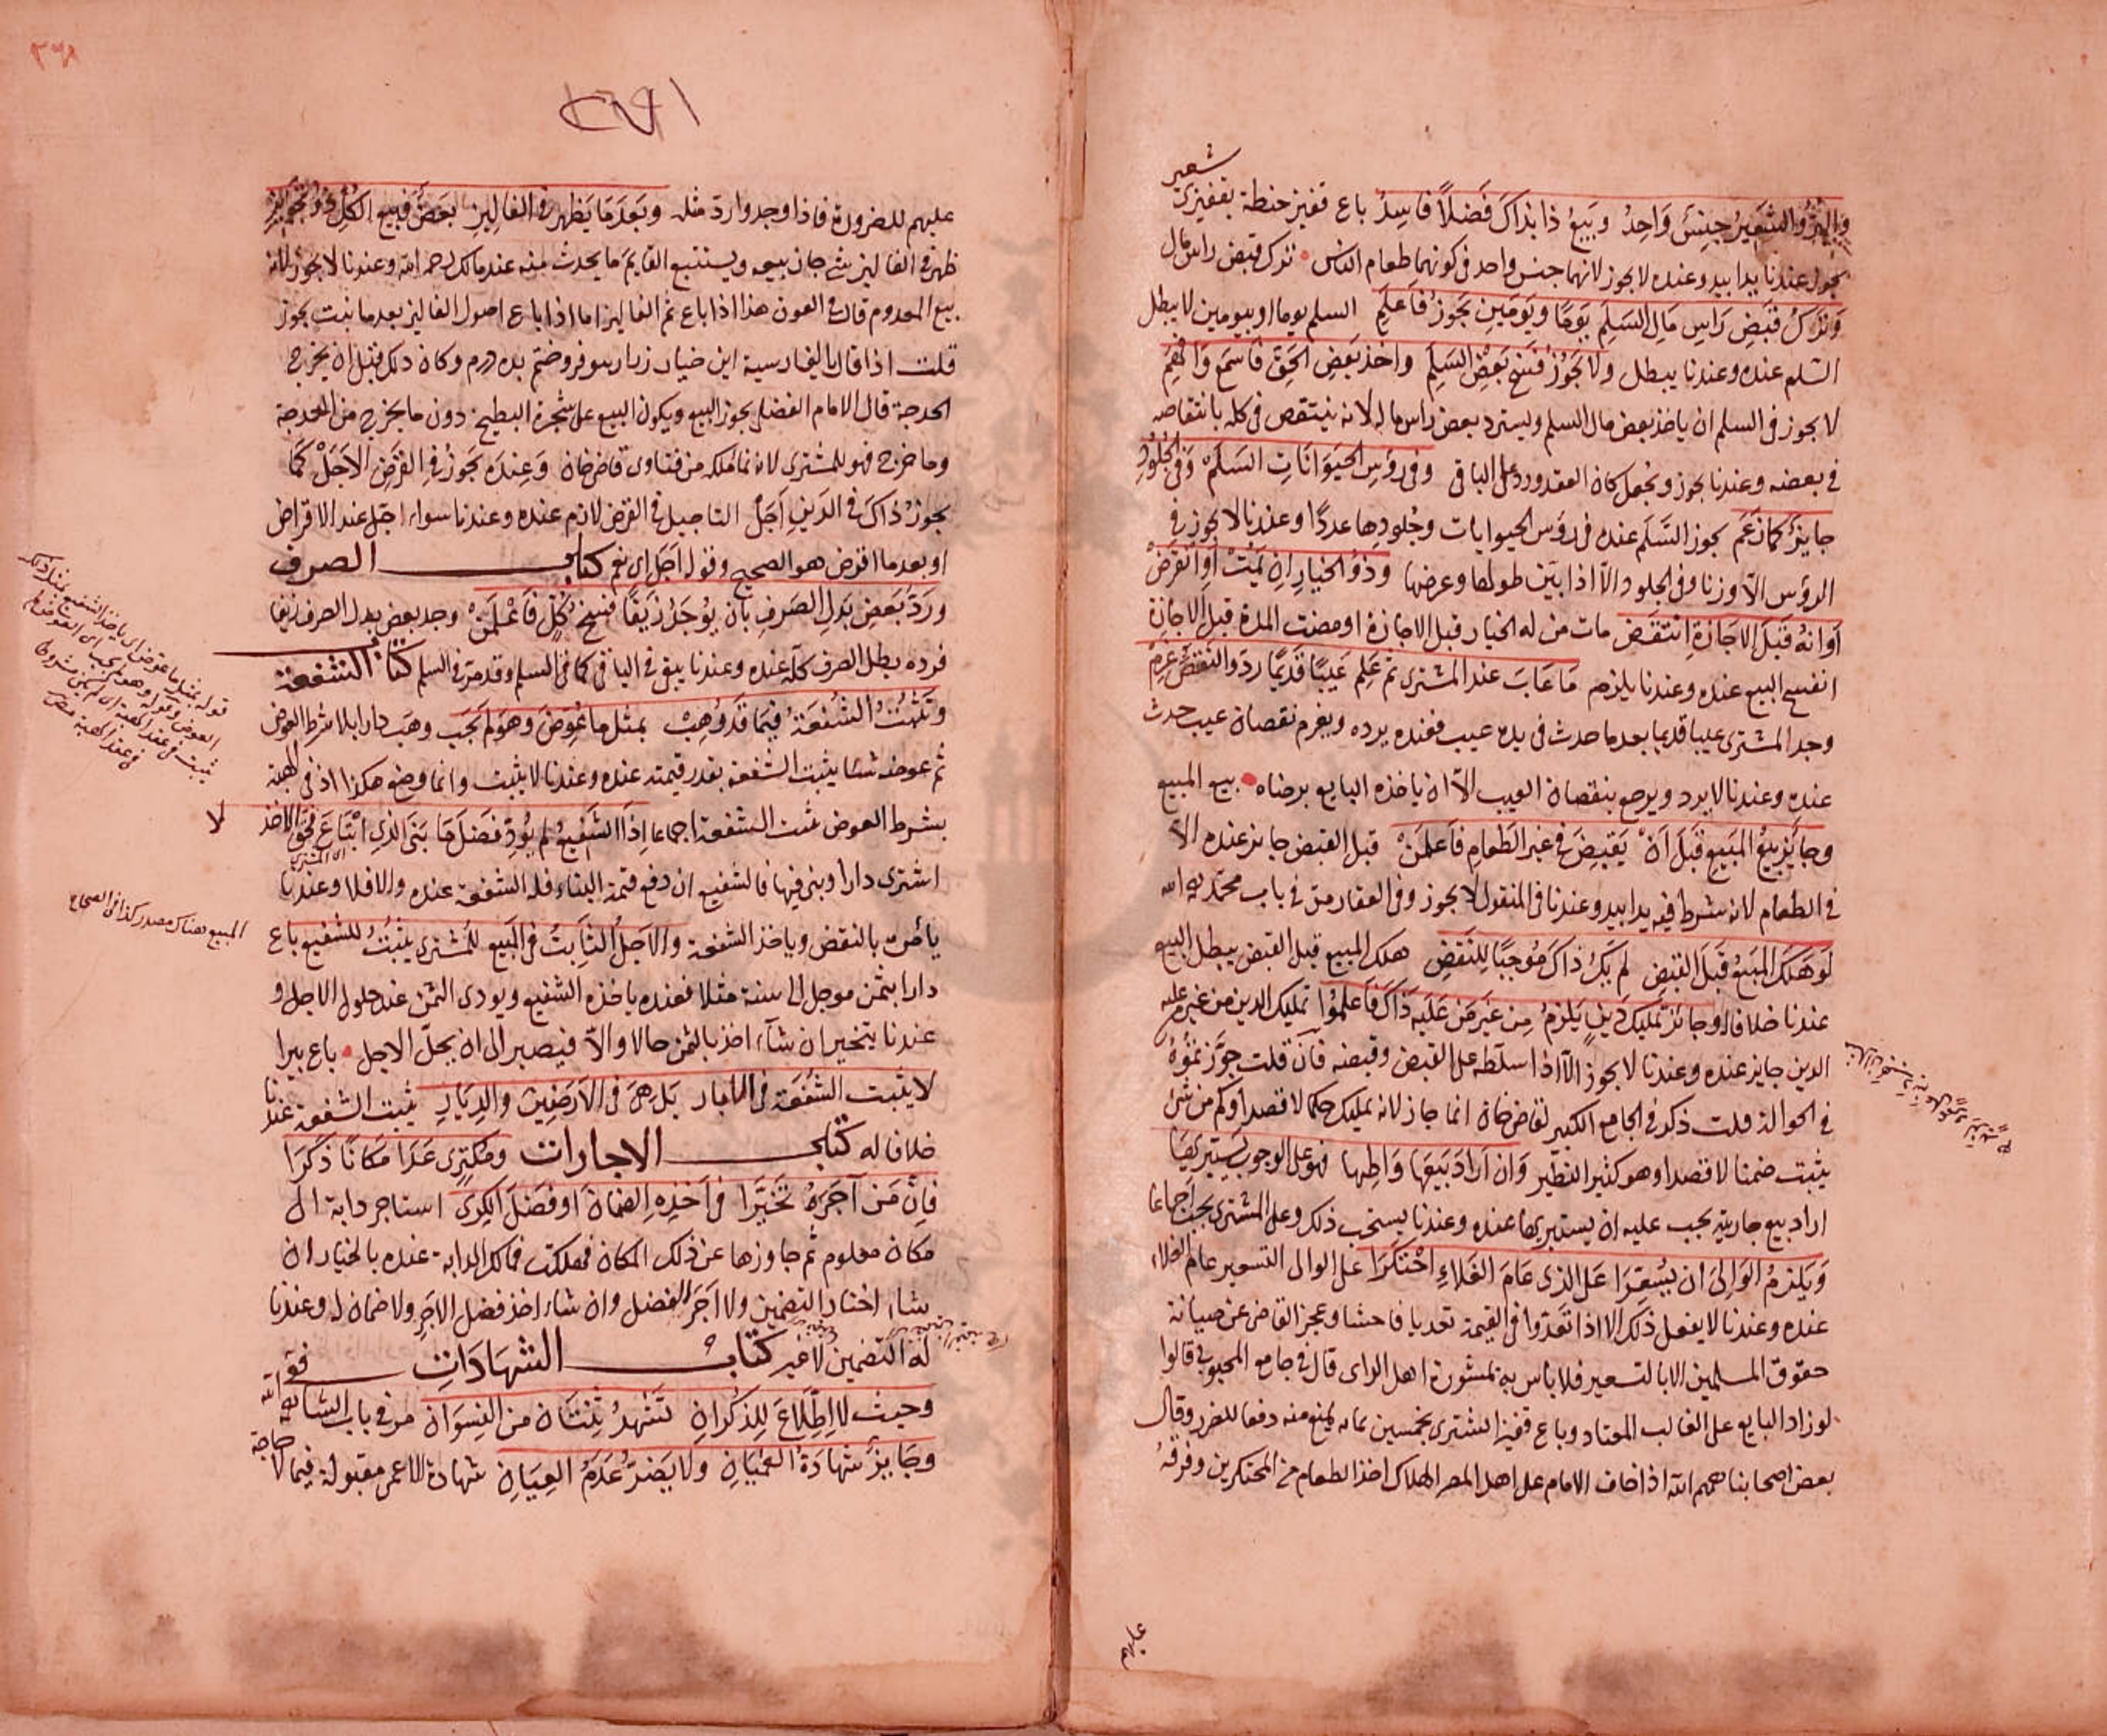 شعير
والبر والشعير جنس واحد وبيع ذا بذاك فضلا فاسد باع قفيز حنطة بقفيزي
يجوز عندنا يدا بيد وعنده لا يجوز لانهما جنس واحد في كونهما طعام الناس ترك قبض راس مال
وترك قبض راس مال السلم يوما ويومين يجوز فاعلم السلم يوما او يومين لا يبطل
السلم عنده وعندنا يبطل ولا يجوز فسخ بعض السلم واخذ بعض الحق فاسمع وافهم
لا يجوز في السلم ان ياخذ بعض مال السلم ويسترد بعض راس ماله لانه ينتقض في كله بانتقاضه
في بعضه وعندنا يجوز ويجعل كان العقد ورد على الباقي وفي رؤس الحيوانات السلم وفي الجلود
جايز كما زعم يجوز السلم عنده في رؤس الحيوانات وجلودها عددا وعندنا لا يجوز في
الرؤس الا وزنا وفي الجلود الا اذا بين طولها وعرضها وذو الخيار ان يمت او انقرض
اوانه قبل الاجازة انتقض مات من له الخيار قبل الاجازة او مضت المدة قبل الاجازة
انفسخ البيع عنده وعندنا يلزم ما عاب عند المشتري ثم علم عيبا قديما رد والنقص غرم
وجد المشتري عيبا قديما بعد ما حدث في يده عيب فعنده يرده ويغرم نقصان عيب حدث
عنده وعندنا لا يرد ويرجع بنقصان العيب الا ان ياخذه البايع برضاه بيع المبيع
وجايز بيع المبيع قبل ان يقبض في غير الطعام فاعلمن قبل القبض جايز عنده الا
في الطعام لانه شرط فيه يدا بيد وعندنا في المنقول لا يجوز وفي العقار مر في باب محمد رحمه الله
لو هلك المبيع قبل القبض لم يك ذاك موجبا للنقض هلك المبيع قبل القبض يبطل البيع
عندنا خلافا له وجائز تمليك دين يلزم من غير من عليه ذاك فاعلموا تمليك الدين من غير من عليه
الدين جايز عنده وعندنا لا يجوز الا اذا سلطه على القبض وقبضه فان قلت جوزتموه
في الحوالة قلت ذكر في الجامع الكبير لقاضي خان انما جاز لانه تمليك حكما لا قصدا وكم من شئ
يثبت ضمنا لا قصدا وهو كثير النظير وان اراد بيعها واطيها فهو على الوجوب يستبريها
اراد بيع جاريته يجب عليه ان يستبريها عنده وعندنا يستحب ذلك وعلى المشتري يجب اجماعا
ويلزم الوالي ان يسعرا على الذي عام الغلاء احتكرا على الوالي التسعير عام الغلاء
عنده وعندنا لا يفعل ذلك الا اذا تعدوا في القيمة تعديا فاحشا وعجز القاضي عن صيانة
حقوق المسلمين الا بالتسعير فلا باس به بمشورة اهل الراي قال في جامع المحبوبي قالوا
لو زاد البايع على الغالب المعتاد وباع قفيزا اشتري بخمسين بمائة يمنع منه دفعا للضرر وقال
بعض اصحابنا رحمهم الله اذا خاف الامام على اهل المصر الهلاك اخذ الطعام من المحتكرين وفرقه
عليهم
عليهم للضرورة فاذا وجدوا ردوا مثله وبعد ما يظهر في الفاليز بعض فبيع الكل
ظهر في الفاليز شئ جاز بيعه ويستتبع القايم ما يحدث منه عند مالك رحمه الله وعندنا لا يجوز لانه
بيع المعدوم قال في العون هذا اذا باع ثمر الفاليز اما اذا باع اصول الفاليز بعد ما نبت يجوز
قلت اذا قال بالفارسية اين خيار زار بتو فروختم بده درم وكان ذلك قبل ان يخرج
الحدجة قال الامام الفضلي يجوز البيع ويكون البيع على شجرة البطيخ دون ما يخرج من الحدجة
وما خرج فهو للمشتري لانه نماء ملكه من فتاوى قاضي خان وعنده يجوز في القرض الاجل كما
يجوز ذاك في الدين اجل التاجيل في القرض لازم عنده وعندنا سواء اجل عند الاقراض
او بعد ما اقرض هو الصحيح وقوله اجل اي نعم كتاب الصرف
ورد بعض بدل الصرف بان يوجد زيفا فسخ كل فاعلمن وجد بعض بدل الصرف زيفا
فرده بطل الصرف كله عنده وعندنا يبقى في الباقي كما في السلم وقد مر في السلم كتاب الشفعة
وتثبت الشفعة فيما قد وهب بمثل ما عوض وهو لم يجب وهب دارا بلا شرط العوض
ثم عوضه شئا يثبت الشفعة بقدر قيمته عنده وعندنا لا يثبت وانما وضع هكذا اذ في الهبة
بشرط العوض تثبت الشفعة اجماعا اذا الشفيع لم يود فضل ما بنى الذي ابتاع فحق الاخذ لا
اي المشتري
اشترى دارا وبنى فيها فالشفيع ان دفع قيمة البناء فله الشفعة عنده والا فلا وعندنا
يامره بالنقض وياخذ الشفعة والاجل الثابت في البيع للمشتري يثبت للشفيع باع
دارا بثمن موجل الى سنة مثلا فعنده ياخذه الشفيع ويودي الثمن عند حلول الاجل و
عندنا يتخير ان شاء اخذ بالثمن حالا والا فيصبر الى ان يحل الاجل باع بيرا
لا يثبت الشفعة في الابار بل هي في الارضين والديار يثبت الشفعة عندنا
خلافا له كتاب الاجارات ومكتري عدا مكانا ذكرا
فان من آجره تخيرا في اخذه الضمان او فضل الكرى استاجر دابة الى
مكان معلوم ثم جاوزها عن ذلك المكان فهلكت فمالك الدابة عنده بالخيار ان
شاء اختار التضمين ولا اجر للفضل وان شاء اخذ فضل الاجر ولا ضمان له وعندنا
له التضمين لا غير كتاب الشهادات
وحيث لا اطلاع للذكران تشهد ثنتان من النسوان مر في باب الشافعي رحمه الله
وجايز شهادة العميان ولا يضر عدم العيان شهادة الاعمى مقبولة فيما لا حاجة
المبيع هناك مصدر كذا في الصحاح